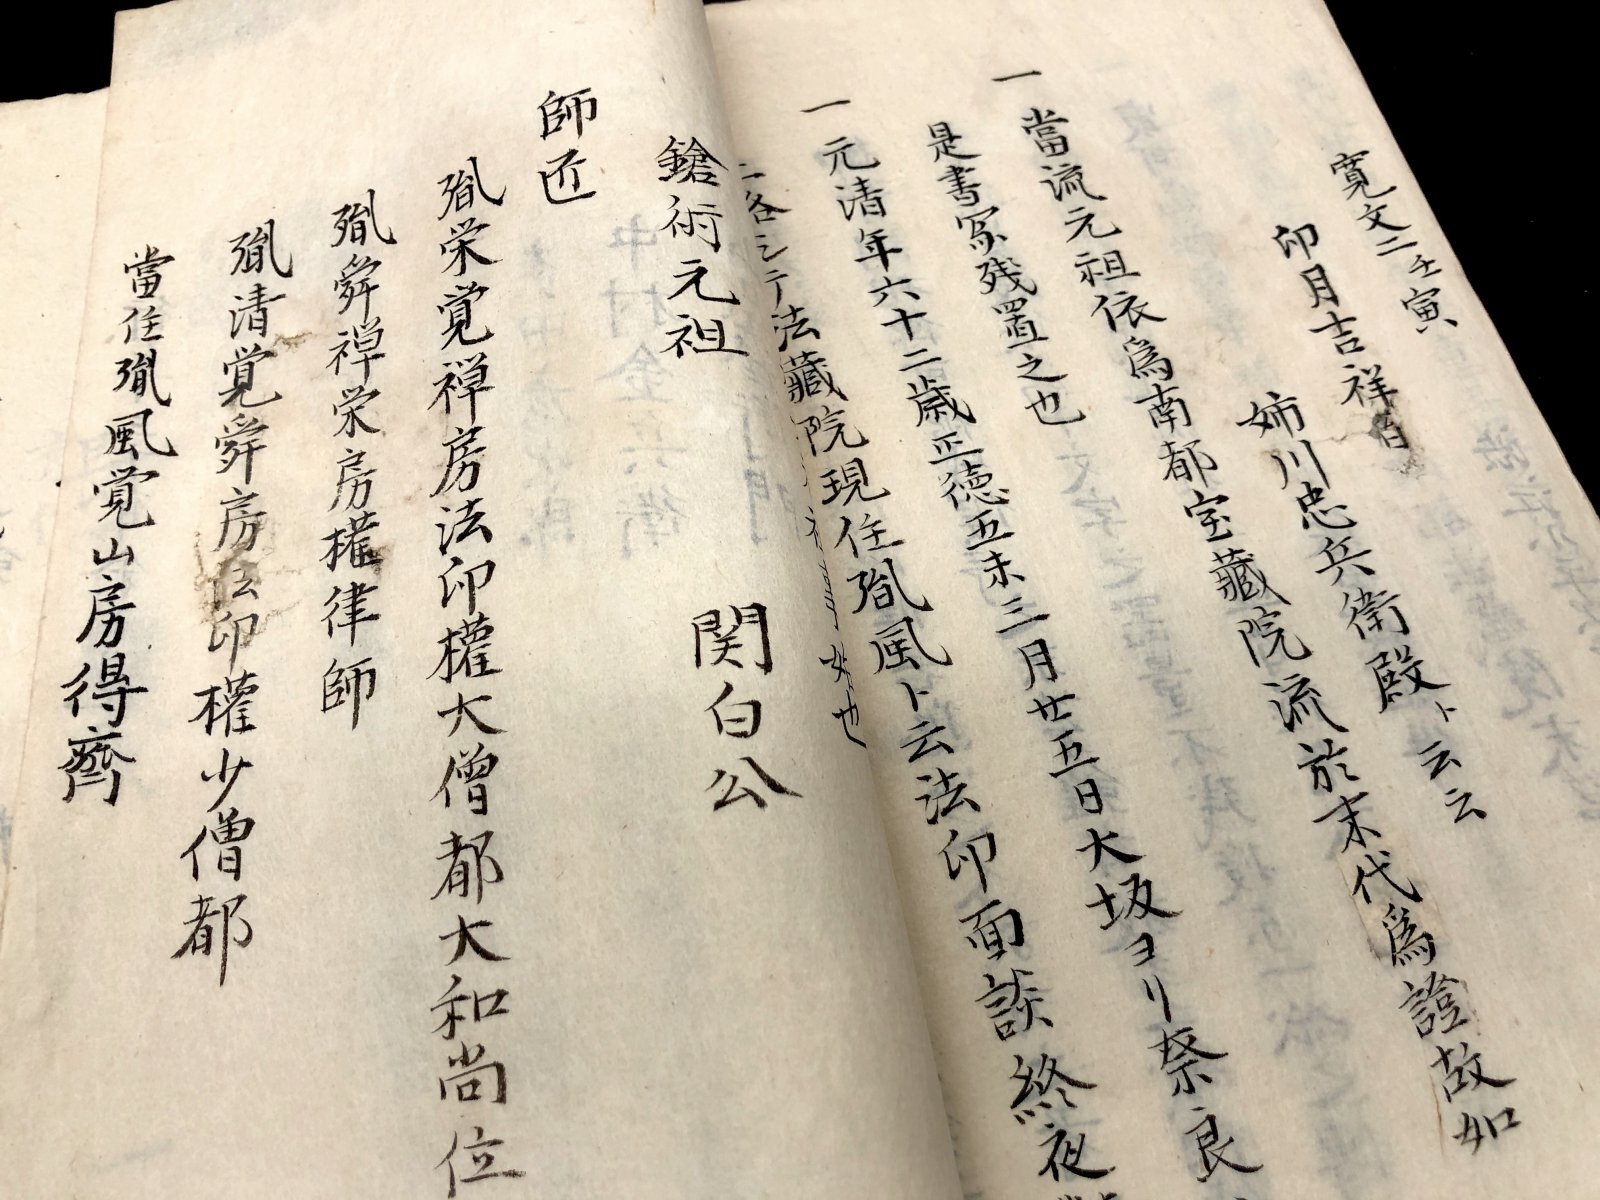 寛文二壬寅
印月吉祥日
姉川忠兵衛殿ト云云
一當流元祖依爲南都宝藏院流於末代爲證故如
是書寫残置之也
一元清年六十二歳正徳五未三月廿五日大坂ヨリ祭良
法藏院現住胤風ト云法印面談終夜
鎗術元祖
関白公
師匠
胤栄覚禅房法印權大僧都大和尚位
胤舜禅栄房權律師
胤清覚舜房法印權少僧都
當住胤風覚山房得齊